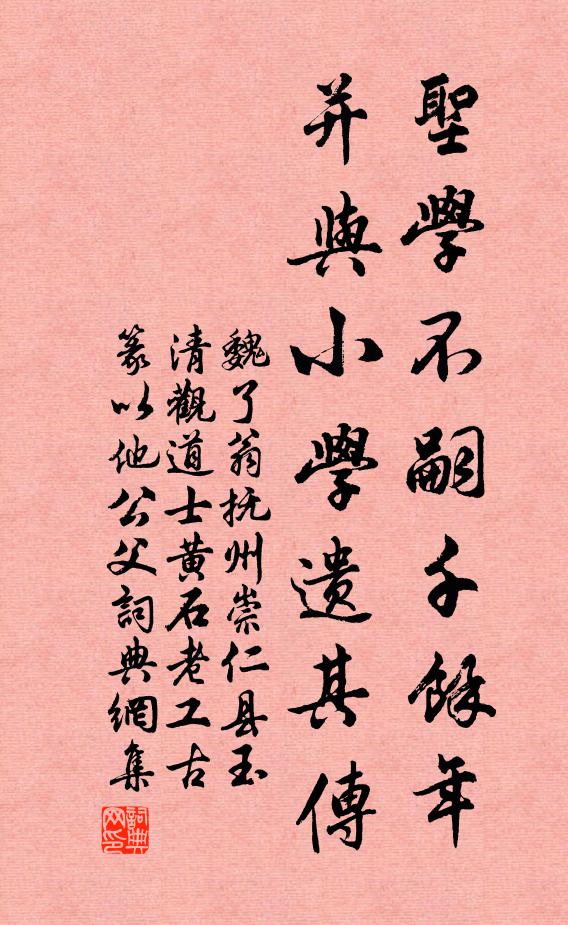 聖學不嗣千餘年
并與小學遺其傳
魏了翁抚州崇仁县玉
清觀道士黃石老工古
篆以他公父詞典網集
詞典网印